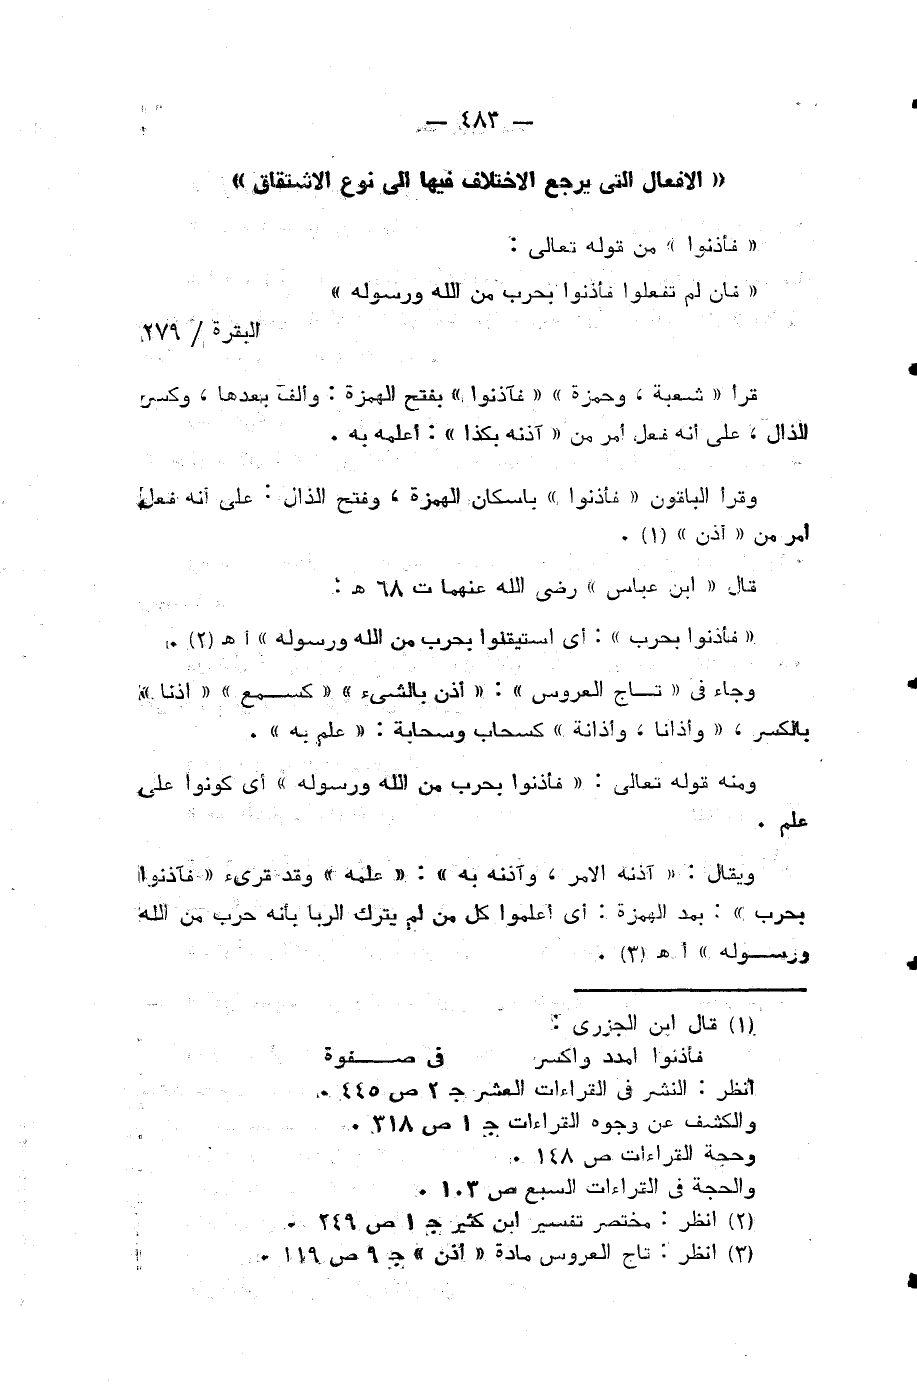 — ٤٨٣ —
« الافعال التى يرجع الاختلاف فيها الى نوع الاشتقاق »
« فأذنوا » من قوله تعالى :
« فان لم تفعلوا فأذنوا بحرب من الله ورسوله »
البقرة / ٢٧٩
قرأ « شعبة ، وحمزة » « فآذنوا » بفتح الهمزة : وألف بعدها ، وكسر
الذال ، على أنه فعل أمر من « آذنه بكذا » : أعلمه به .
وقرأ الباقون « فأذنوا » باسكان الهمزة ، وفتح الذال : على أنه فعل
أمر من « أذن » (١) .
قال « ابن عباس » رضى الله عنهما ت ٦٨ هـ :
« فأذنوا بحرب » : أى استيقنوا بحرب من الله ورسوله » أ هـ (٢) .
وجاء فى « تـاج العروس » : « أذن بالشىء » « كسـمع » « اذنا »
بالكسر ، « وأذانا ، وأذانة » كسحاب وسحابة : « علم به » .
ومنه قوله تعالى : « فأذنوا بحرب من الله ورسوله » أى كونوا على
علم .
ويقال : « آذنه الامر ، وآذنه به » : « علمه » وقد قرىء « فآذنوا
بحرب » : بمد الهمزة : أى أعلموا كل من لم يترك الربا بأنه حرب من الله
ورسـوله » أ هـ (٣) .
(١) قال ابن الجزرى :
فأذنوا امدد واكسر فى صـفوة
أنظر : النشر فى القراءات العشر جـ ٢ ص ٤٤٥ .
والكشف عن وجوه القراءات جـ ١ ص ٣١٨ .
وحجة القراءات ص ١٤٨ .
والحجة فى القراءات السبع ص ١٠٣ .
(٢) انظر : مختصر تفسير ابن كثير جـ ١ ص ٢٤٩ .
(٣) انظر : تاج العروس مادة « أذن » جـ ٩ ص ١١٩ .